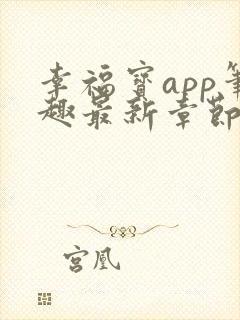 幸福宝app笔
趣最新章節
宫凰